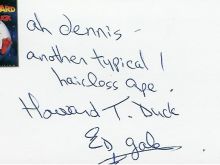 ARD
UCK
ah dennis -
another typical
hairless ape.
Howard T. Duck
Ed Gale